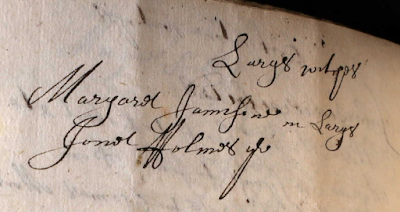 Largs witches
Margaret Jamisone in Largs
Jonet Holmes yr